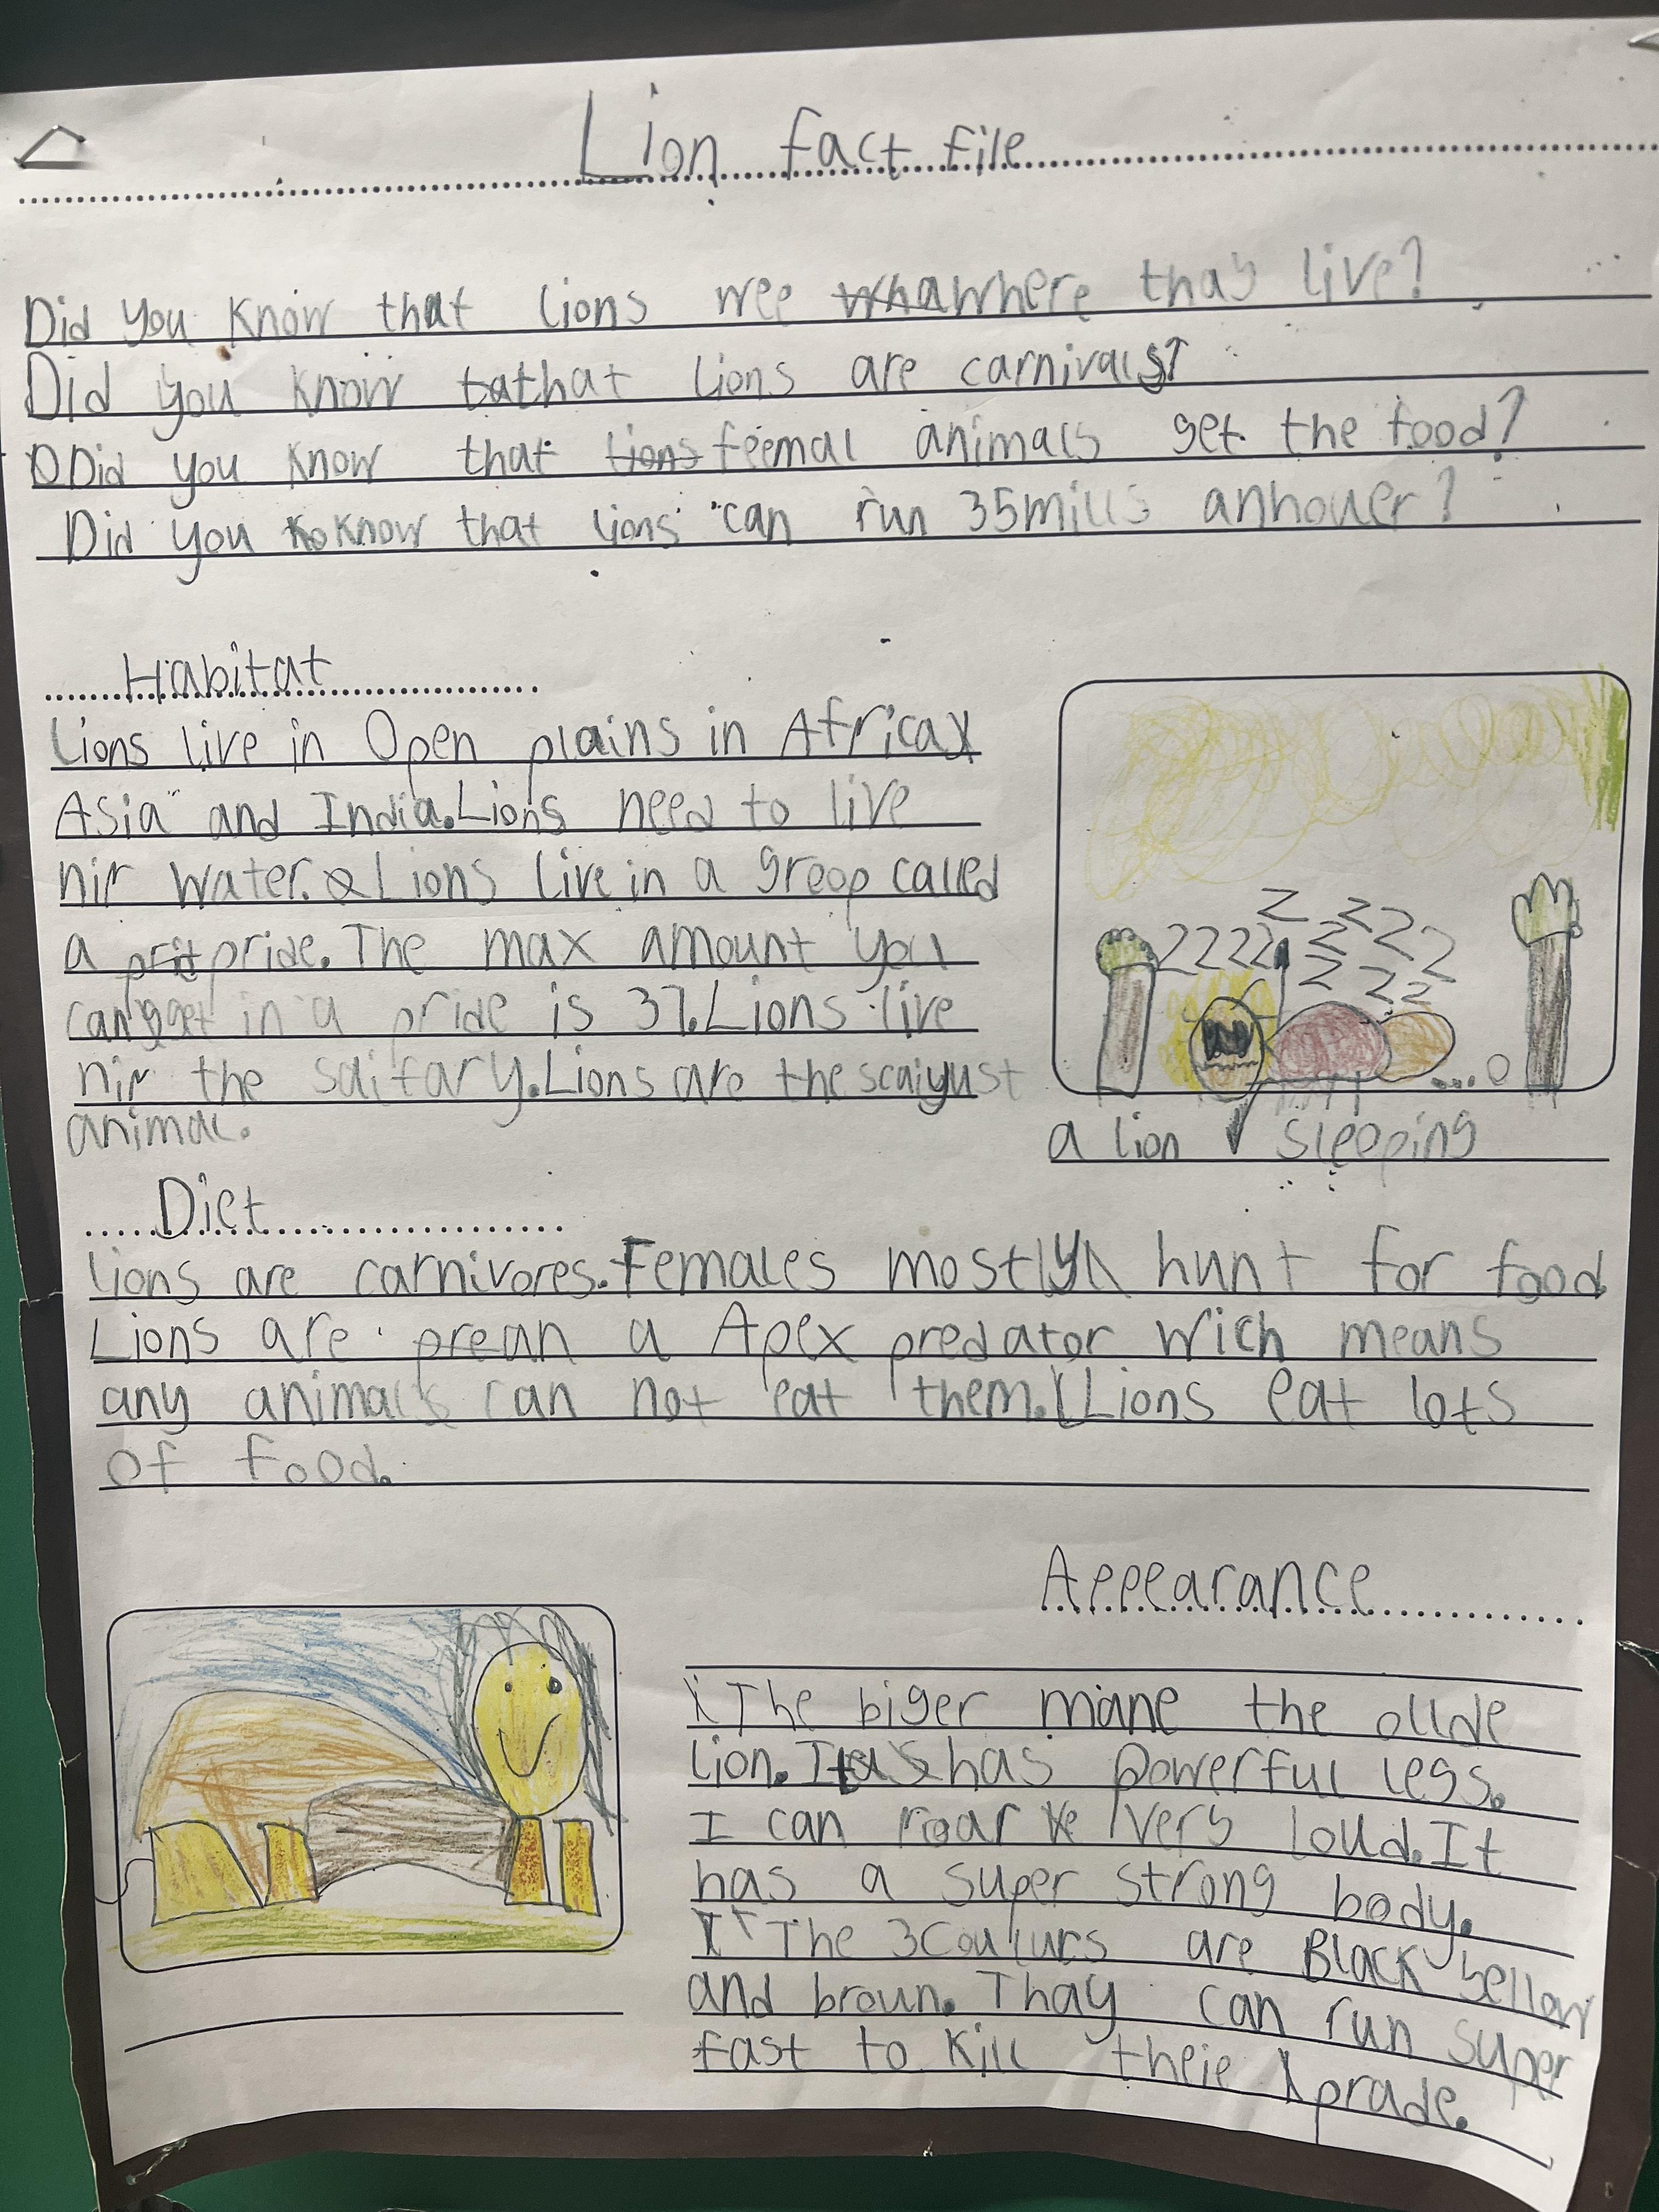 Lion fact file
Did you know that lions wee where thay live?
Did you know that lions are carnivals?
Did you know that feemal animals get the food?
Did you know that lions can run 35mills anhouer?
Habitat
Lions live in Open plains in Africa
Asia and India. Lions need to live
nir water. Lions live in a greop called
a pride. The max amount you
can get in a pride is 37. Lions live
nir the saifary. Lions are the scaiyust
animal.
zzzz z z z z z z z z z
a lion sleeping
Diet
Lions are carnivores. Females mostly hunt for food
Lions are a Apex predator wich means
any animals can not eat them. Lions eat lots
of food.
Appearance
The biger mane the ollde
lion. It has powerful legs.
I can roar very loud. It
has a super strong body.
The 3 Coulurs are Black yellow
and broun. Thay can run super
fast to kill theie prade.